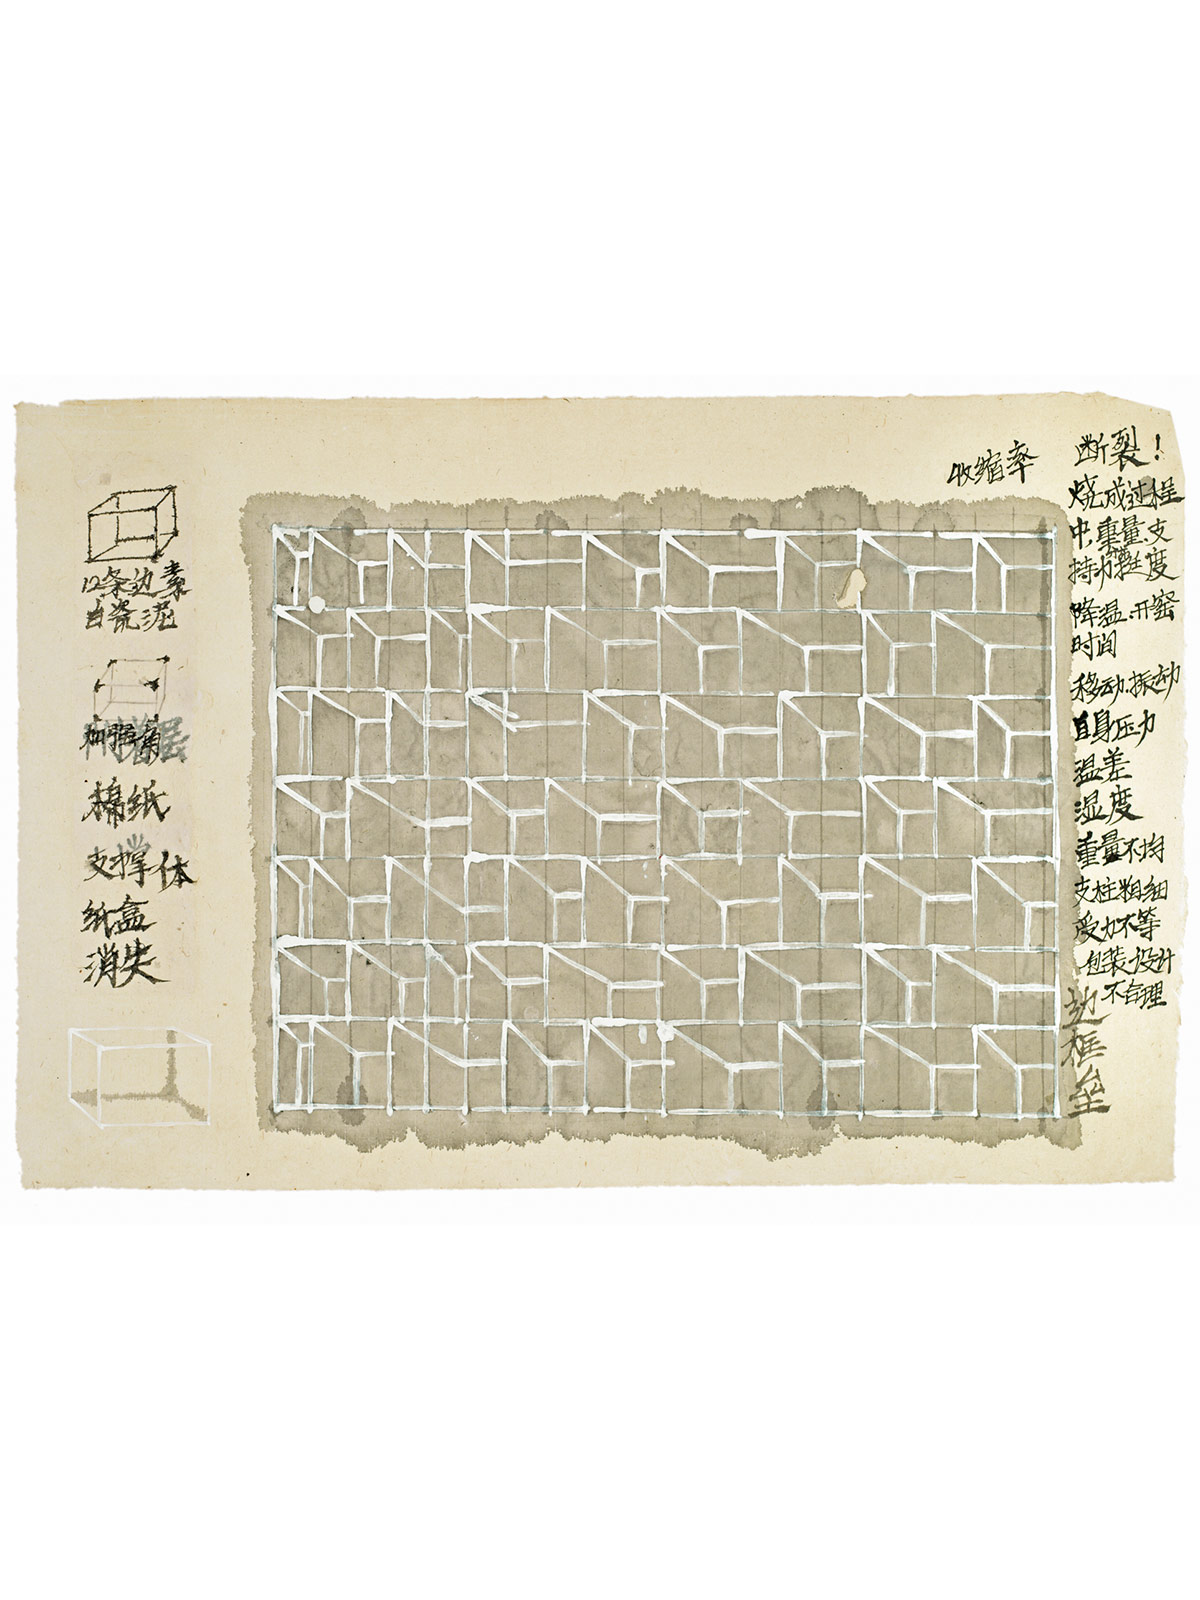 12条边素
白瓷泥
棉纸
支撑体
纸盒
消失
收缩率
断裂!
烧成过程
中.重量.支
持力.度
降温.开窑
时间
移动.振动
自身压力
温差
湿度
重量不均
支柱粗细
受力不等
包装设计
不合理
边
框
垒